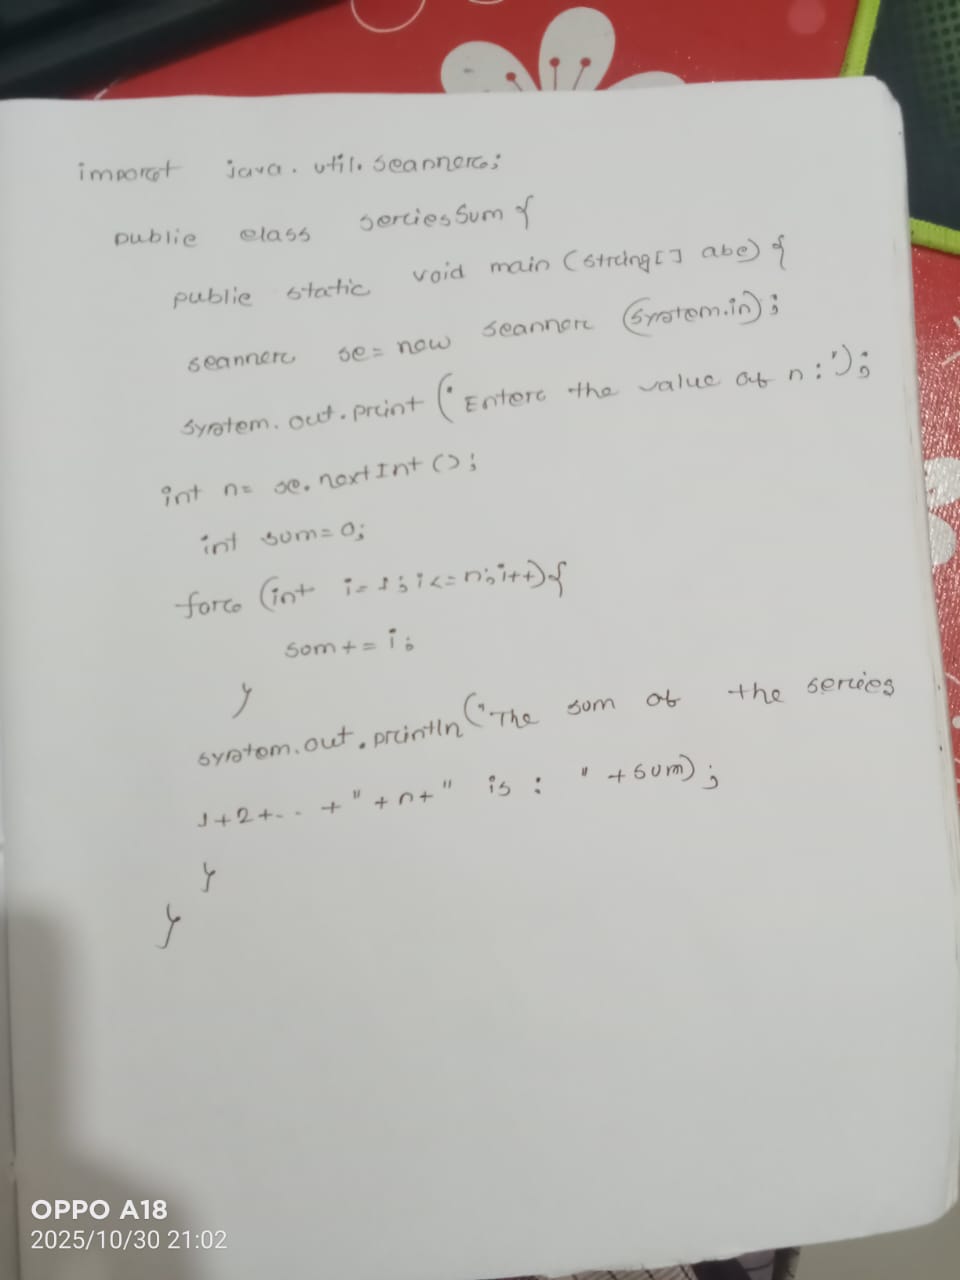 import java.util.Scanner;
public class SeriesSum {
public static void main (String[] abc) {
Scanner sc = new Scanner (System.in);
System.out.print ("Enter the value of n : ");
int n = sc.nextInt ();
int sum = 0;
for (int i = 1; i <= n; i++) {
sum += i;
}
System.out.println ("The sum of the series
1+2+.. + " + n + " is : " + sum);
}
}
OPPO A18
2025/10/30 21:02